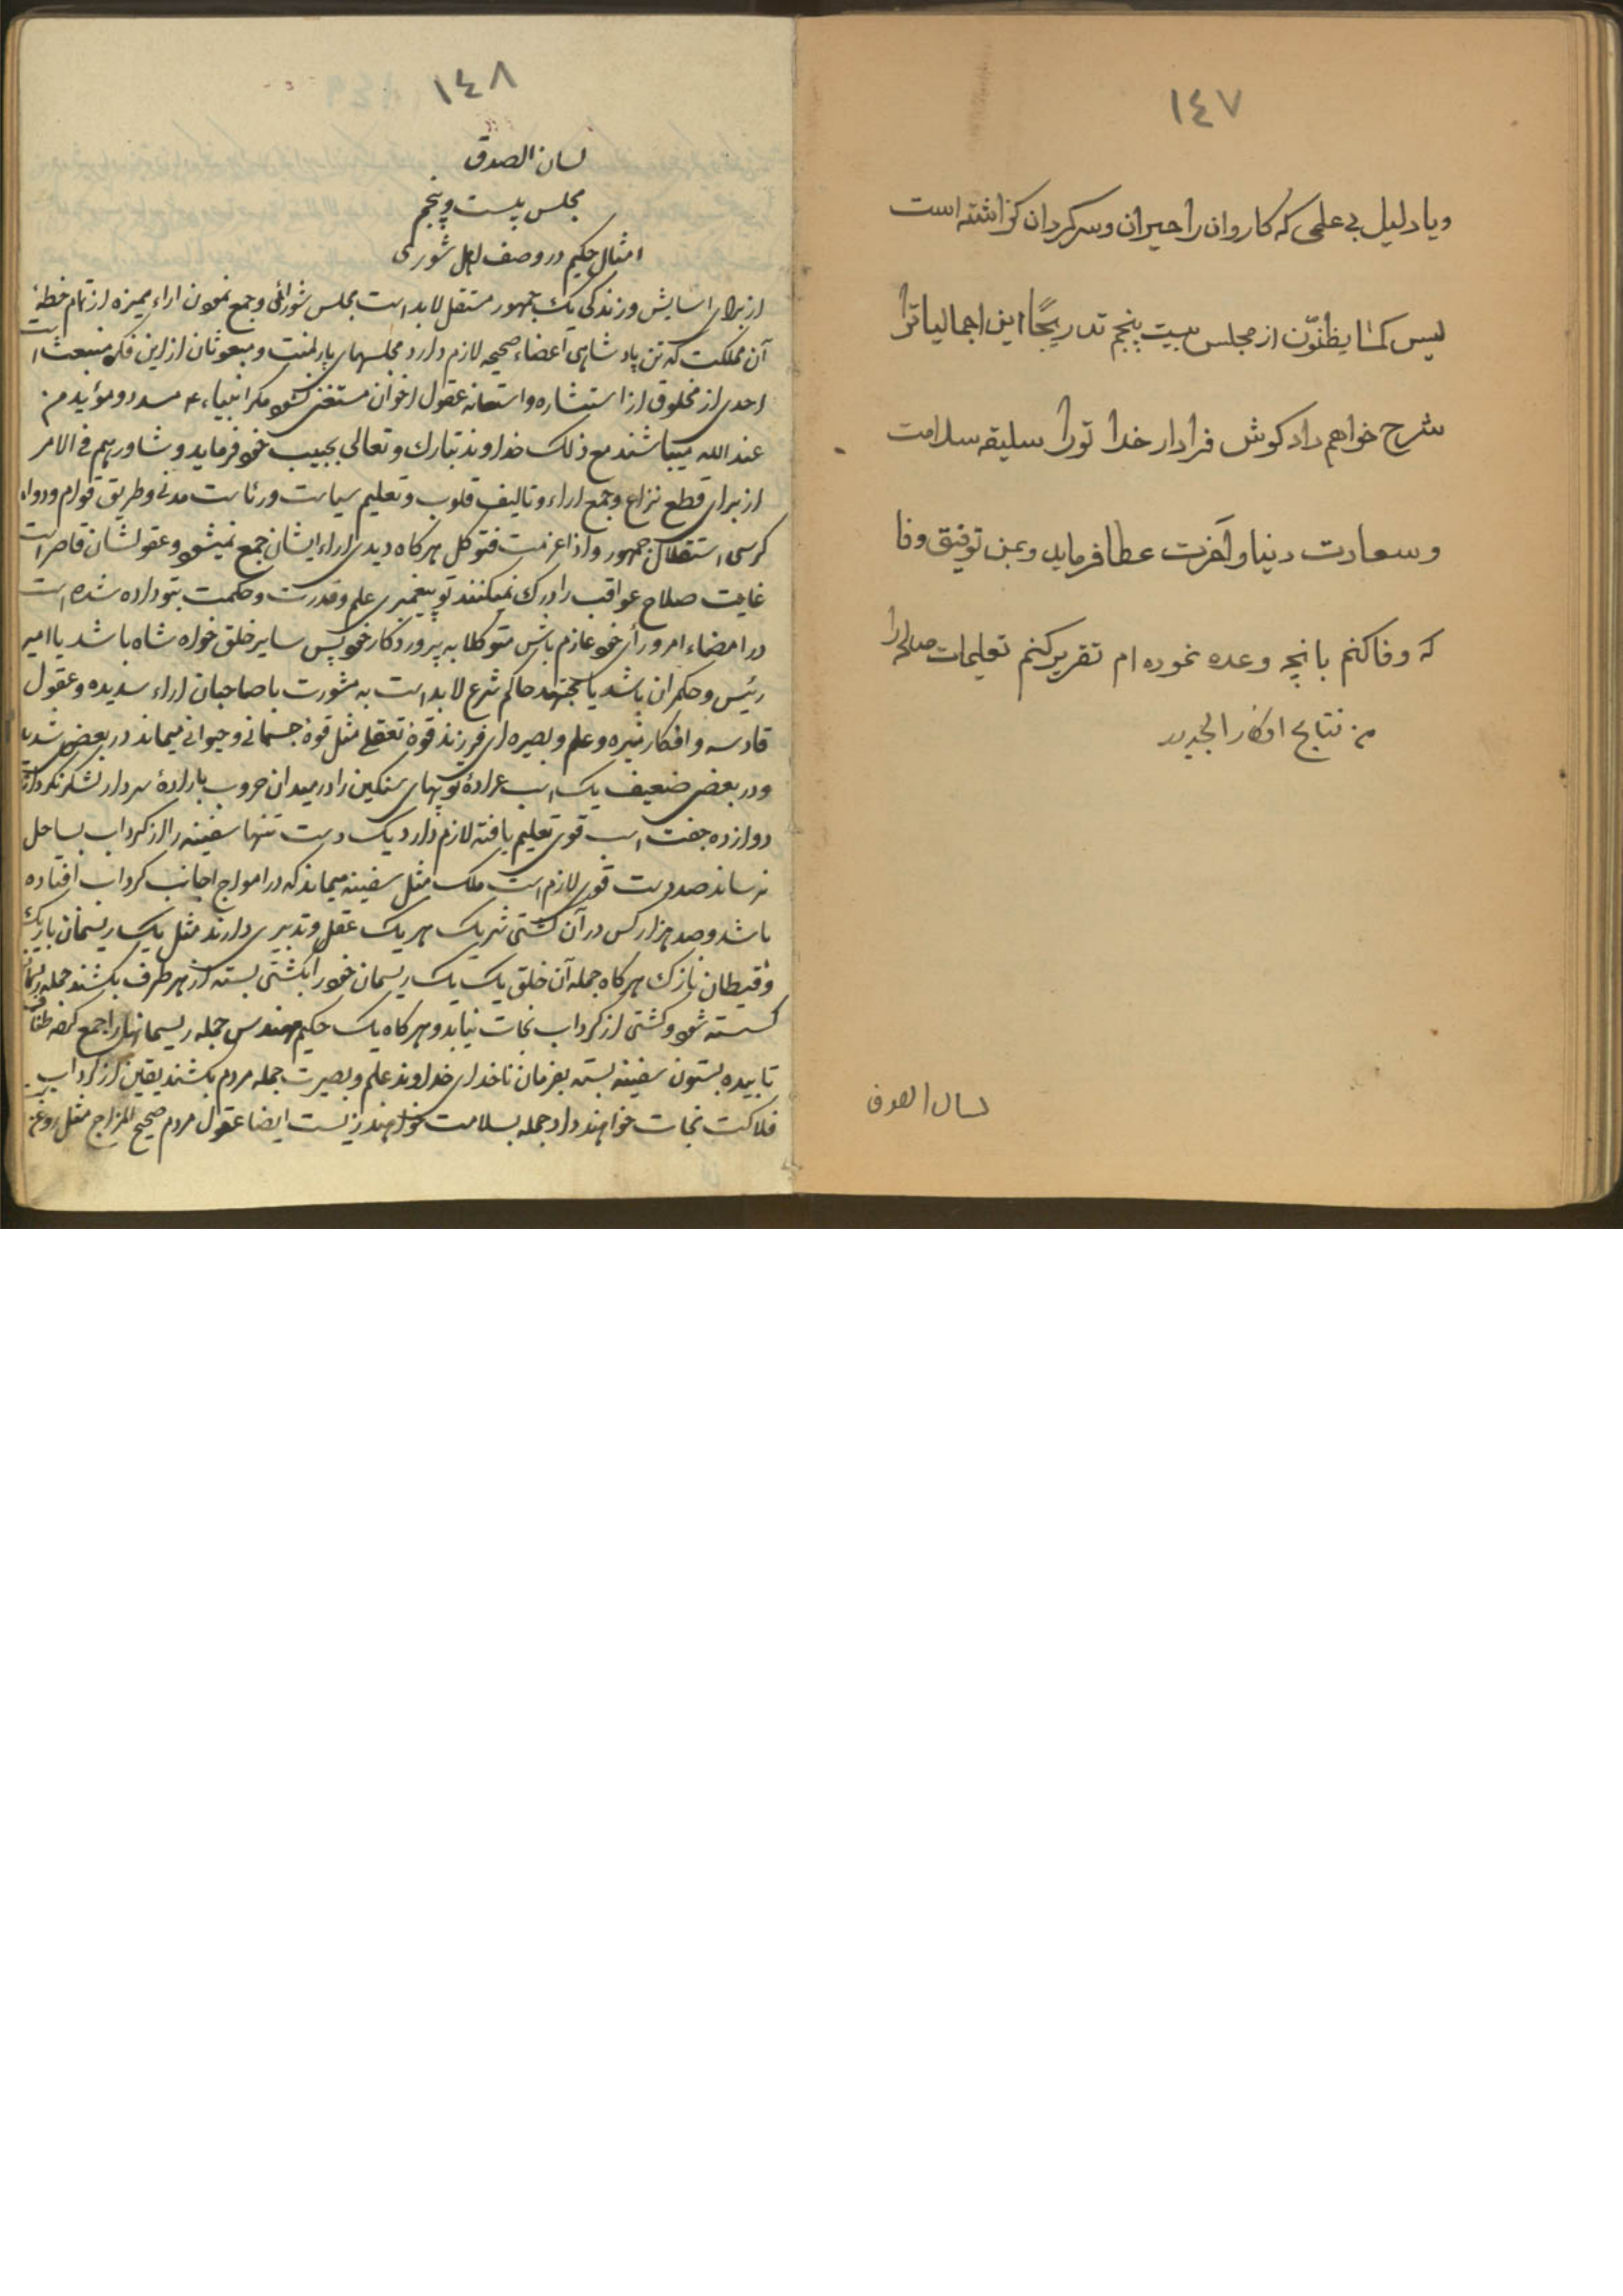 ١٤٧
ویا دلیل بی علمی که کاروان را حیران و سرکردان کزاشته است
لیس کما یظنّون از مجلس بیست پنجم تدریجًا این اجمالیاترا
شرح خواهم داد کوش فرا دار خدا تورا سلیقه سلامت
و سعادت دنیا و آخرت عطا فرماید و بمن توفیق وفا
که وفا کنم بانچه وعده نموده ام تقریر کنم تعلیمات صالحه را
من نتایج افکار الجدید
لسان الصدق
١٤٨
لسان الصدق
مجلس بیست و پنجم
امثال حکیم در وصف اهل شوری
از برای اسایش و زندکی یک جمهور مستقل لابد است مجلس شورائی و جمع نمودن اراء ممیزه از تمام خطهٔ
آن مملکت که تن پادشاهی اعضاء صحیحه لازم دارد مجلسهای پارلمنت و مبعوثان از این فکر منبعث است
احدی از مخلوق از استشاره و استعانه عقول اخوان مستغنی نشود مکر انبیاء ع مسدد و مؤید من
عند الله میباشند مع ذلک خداوند تبارک و تعالی بحبیب خود فرماید و شاورهم فی الامر
از برای قطع نزاع و جمع اراء و تالیف قلوب و تعلیم سیاست و رئاست مدنی و طریق قوام و دوام
کرسی استقلال جمهور و اذا عزمت فتوکل هرکاه دیدی اراء ایشان جمع نمیشود و عقولشان قاصر است
غایت صلاح عواقب را درک نمیکنند تو پیغمبری علم و قدرت و حکمت بتو داده شده است
در امضاء امر و رأی خود عازم باش متوکلا به پروردکار خود پس سایر خلق خواه شاه باشد یا امیر
رئیس و حکمران باشد یا مجتهد حاکم شرع لابد است به مشورت با صاحبان اراء سدیده و عقول
قادسه و افکار نیره و علم و بصیره ای فرزند قوهٔ تعقل مثل قوهٔ جسمانی و حیوانی میماند در بعض شدید
و در بعض ضعیف یک اسب عرادهٔ توپهای سنکین را در میدان حروب بارادهٔ سردار لشکر نکرداند
دوازده جفت اسب قوی تعلیم یافته لازم دارد یک دست تنها سفینه را از کرداب بساحل
نرساند صد دست قوی لازم است ملک مثل سفینه میماند که در امواج اجانب کرداب افتاده
باشد و صد هزار کس در آن کشتی شریک هر یک عقل و تدبیری دارند مثل یک ریسمان باریک
و قیطان نازک هرکاه جمله آن خلق یک یک ریسمان خود را بکشتی بسته از هر طرف بکشند جمله ریسمانها
کسسته شود و کشتی از کرداب نجات نیابد و هرکاه یک حکیم مهندس جمله ریسمانها را جمع کرده طناب
تابیده بستون سفینه بسته بفرمان ناخدای خداوند علم و بصیرت جمله مردم بکشند یقین از کرداب
فلاکت نجات خواهند داد جمله بسلامت خواهند زیست ایضا عقول مردم صحیح المزاج مثل روغن